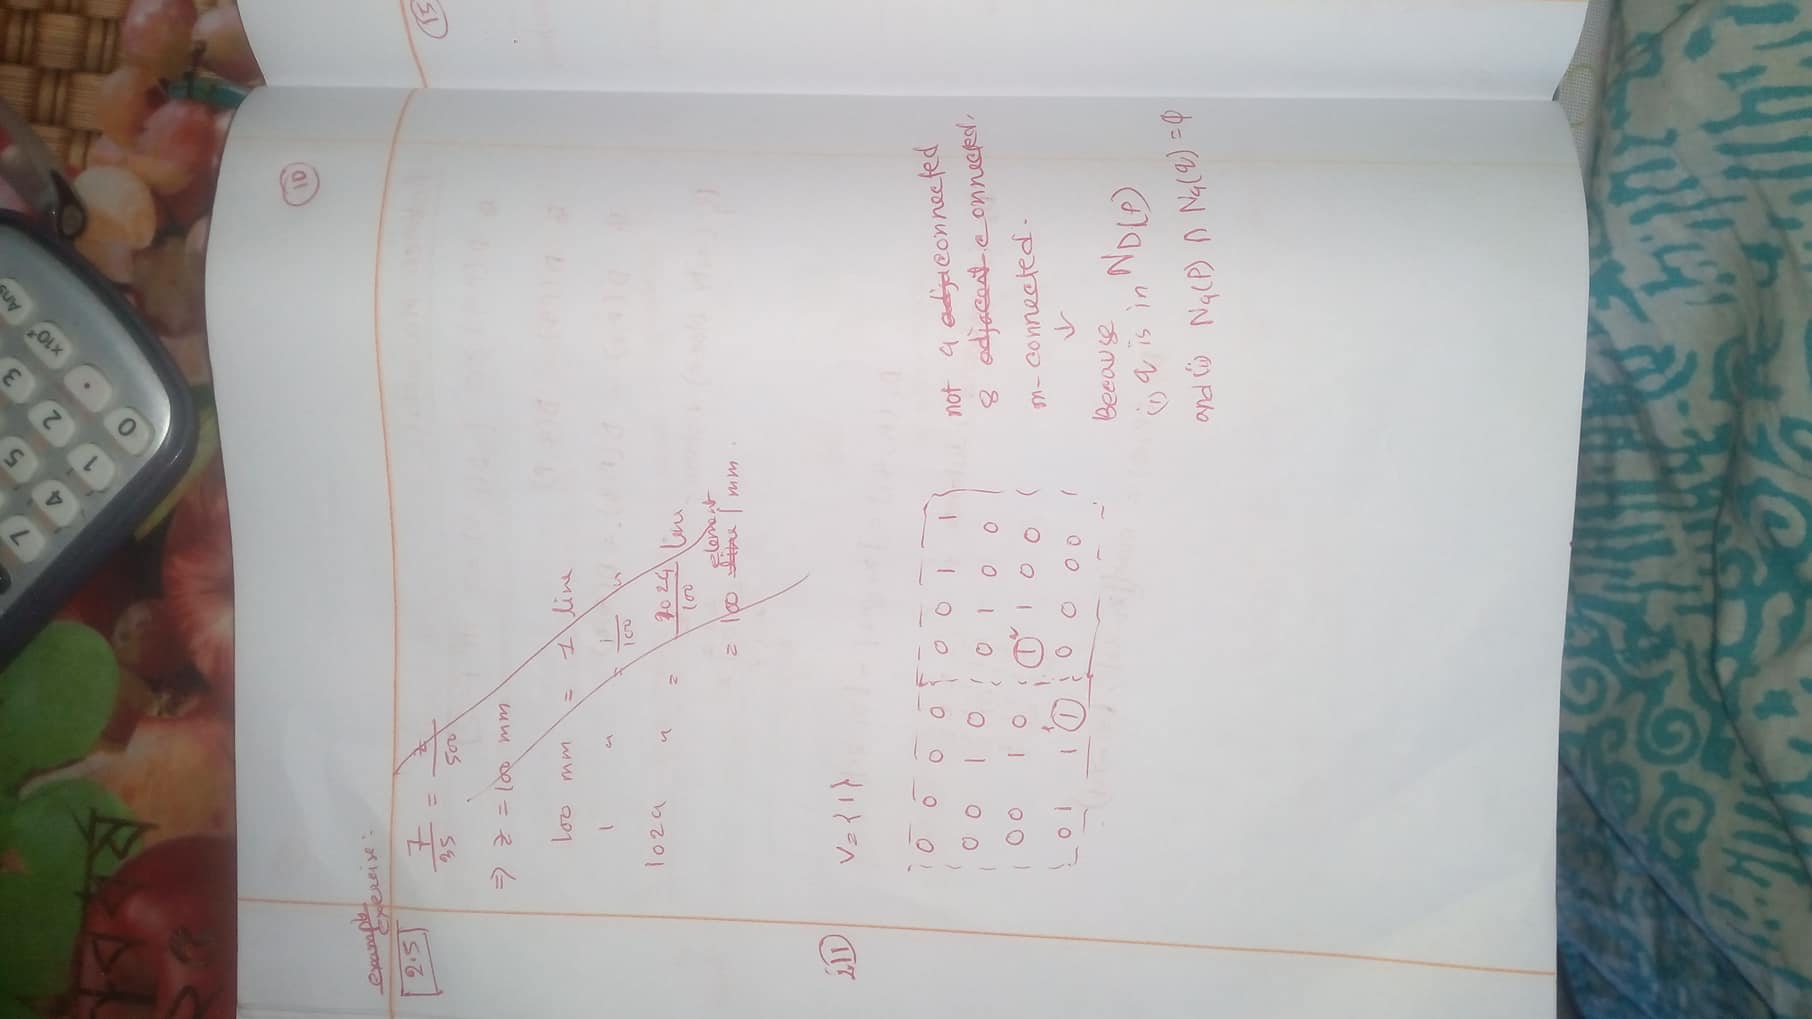 10
example
exercise:
2.5
7/35 = z/500
=> z = 100 mm
100 mm = 1 line
1 " = 1/100 "
1024 " = 1024/100 line
= 100 line element / mm.
2.11
V = {1}
0 0 0 0 0 0 1 1
0 0 1 0 0 1 0 0
0 0 1 0 1 1 0 0
0 1 1 1 0 0 0 0
p
q
not 4 adjacconnected
8 adjacent connected.
m-connected.
↓
Because
(i) q is in ND(P)
and (ii) N4(P) ∩ N4(q) = φ
Ans
×10ˣ
3
2
·
0
5
1
4
7